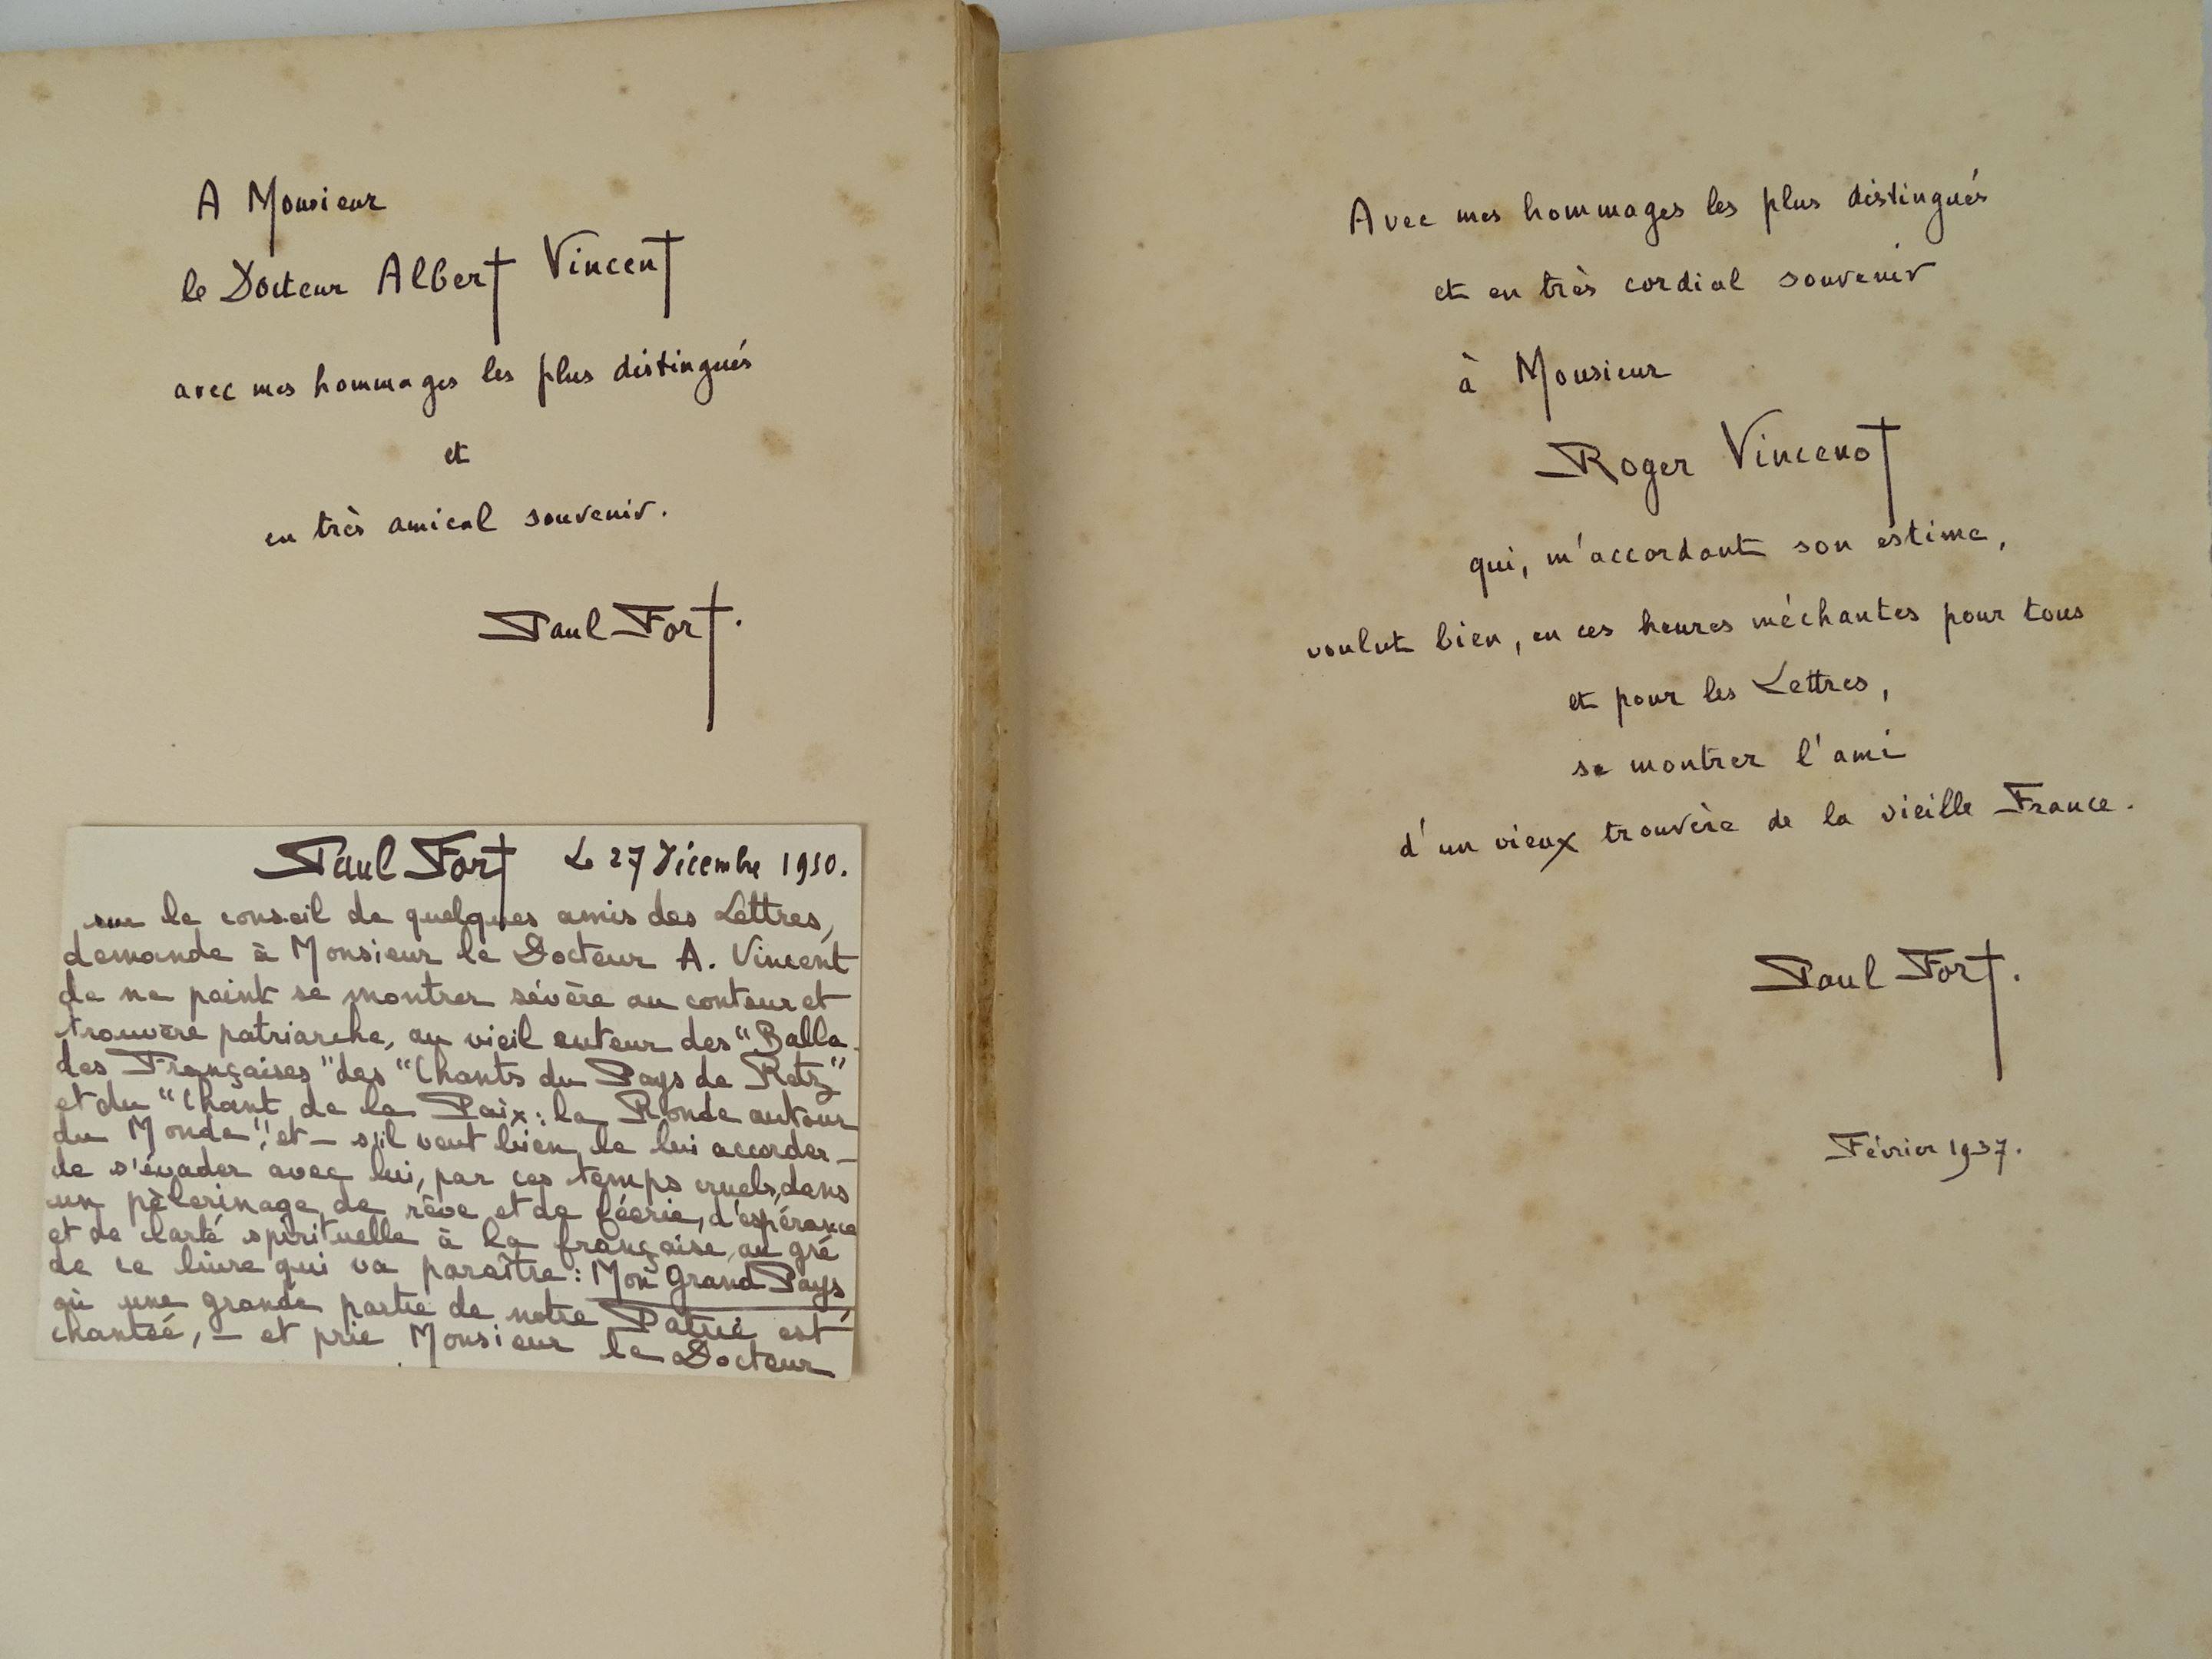 A Monsieur
le Docteur Albert Vincent
avec mes hommages les plus distingués
et
en très amical souvenir.
Paul Fort.
Paul Fort Le 27 Décembre 1950.
sur le conseil de quelques amis des Lettres,
demande à Monsieur le Docteur A. Vincent
de ne point se montrer sévère au conteur et
trouvère patriarche, au vieil auteur des "Balla-
des Françaises" des "Chants du Pays de Retz"
et du "Chant de la Paix: la Ronde autour
du Monde", et — s'il veut bien le lui accorder —
de s'évader avec lui, par ces temps cruels, dans
un pèlerinage de rêve et de féerie, d'espérance
et de clarté spirituelle à la française, au gré
de ce livre qui va paraître: Mon Grand Pays
où une grande partie de notre Patrie est
chantée, — et prie Monsieur le Docteur
Avec mes hommages les plus distingués
et en très cordial souvenir
à Monsieur
Roger Vincenot
qui, m'accordant son estime,
voulut bien, en ces heures méchantes pour tous
et pour les Lettres,
se montrer l'ami
d'un vieux trouvère de la vieille France.
Paul Fort.
Février 1937.